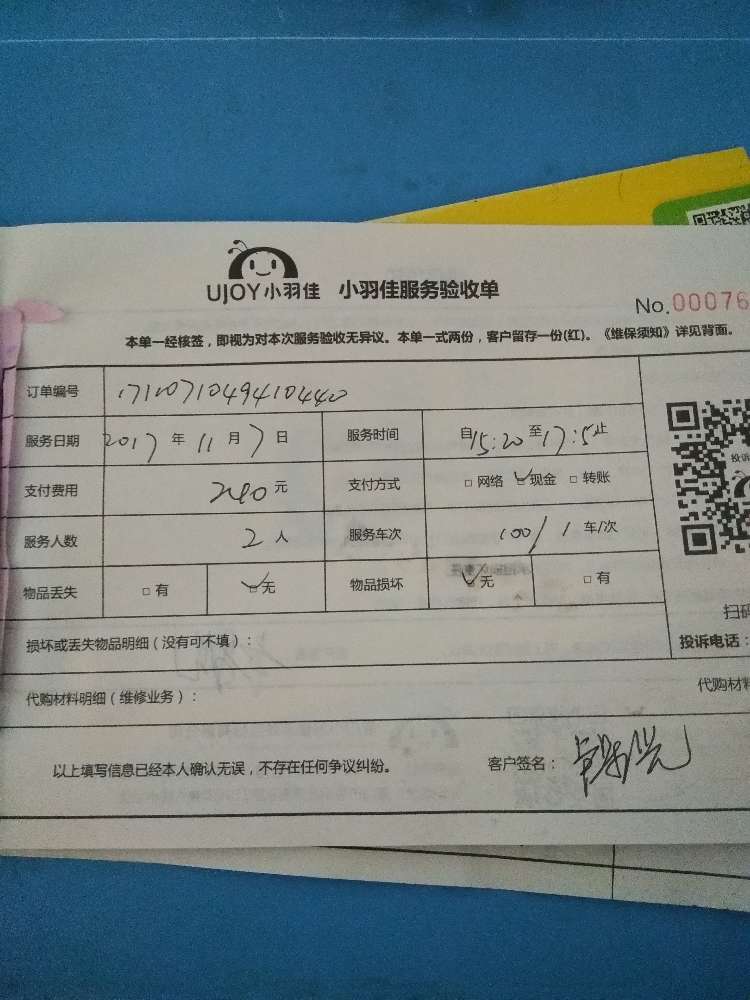 UJOY小羽佳 小羽佳服务验收单
No.00076
本单一经核签，即视为对本次服务验收无异议。本单一式两份，客户留存一份(红)。《维保须知》详见背面。
订单编号
服务日期 2017年11月7日 服务时间 自15:20至17:5止
支付费用 240元 支付方式 □网络 □现金 □转账
服务人数 2人 服务车次 100/1车/次
物品丢失 □有 □无 物品损坏 □无 □有
投诉
扫码
损坏或丢失物品明细（没有可不填）: 投诉电话:
代购材料明细（维修业务）: 代购材料
以上填写信息已经本人确认无误，不存在任何争议纠纷。 客户签名: